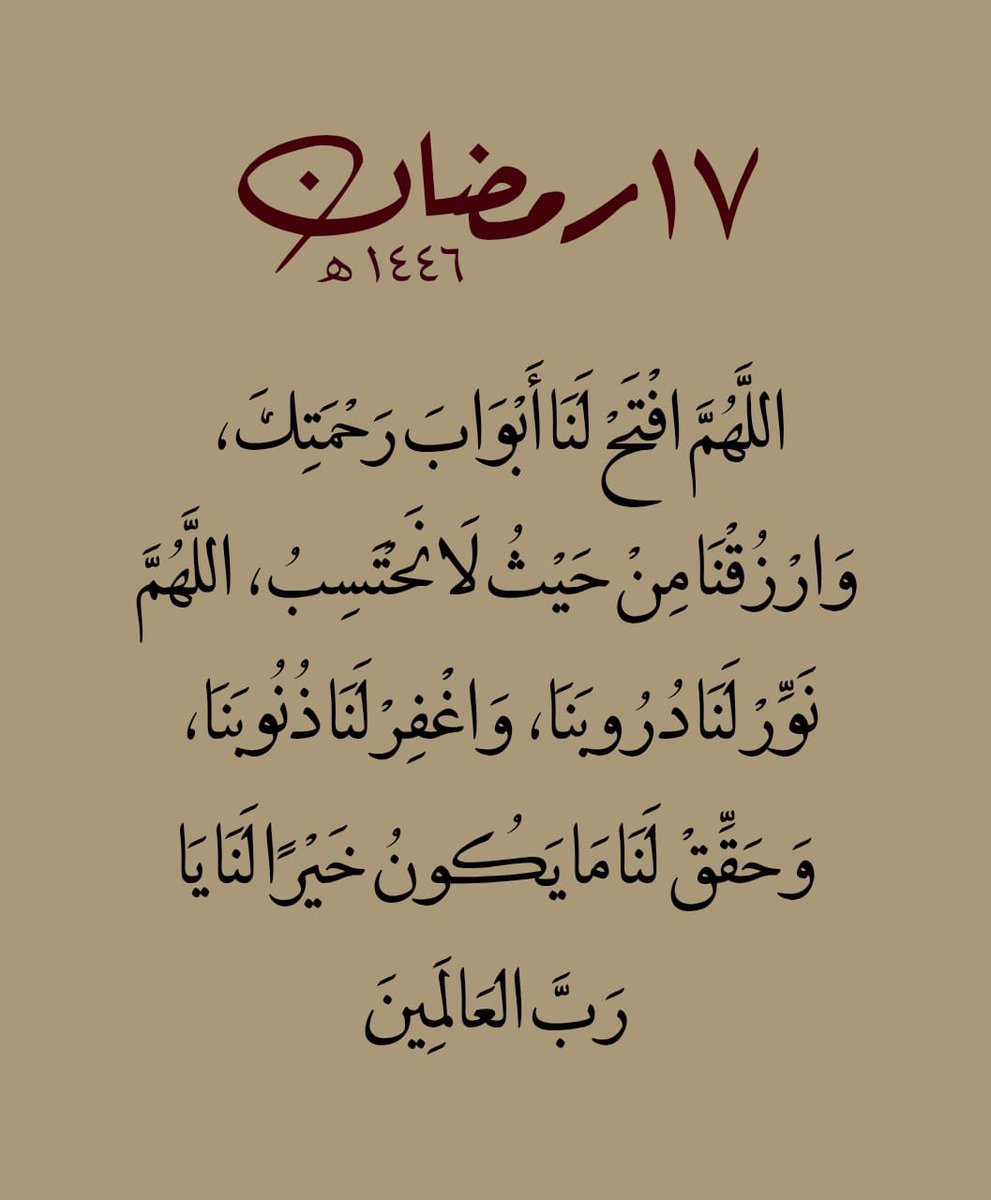 ١٧ رمضان
١٤٤٦ هـ
اللَّهُمَّ افْتَحْ لَنَا أَبْوَابَ رَحْمَتِكَ،
وَارْزُقْنَا مِنْ حَيْثُ لَا نَحْتَسِبُ، اللَّهُمَّ
نَوِّرْ لَنَا دُرُوبَنَا، وَاغْفِرْ لَنَا ذُنُوبَنَا،
وَحَقِّقْ لَنَا مَا يَكُونُ خَيْرًا لَنَا يَا
رَبَّ الْعَالَمِينَ